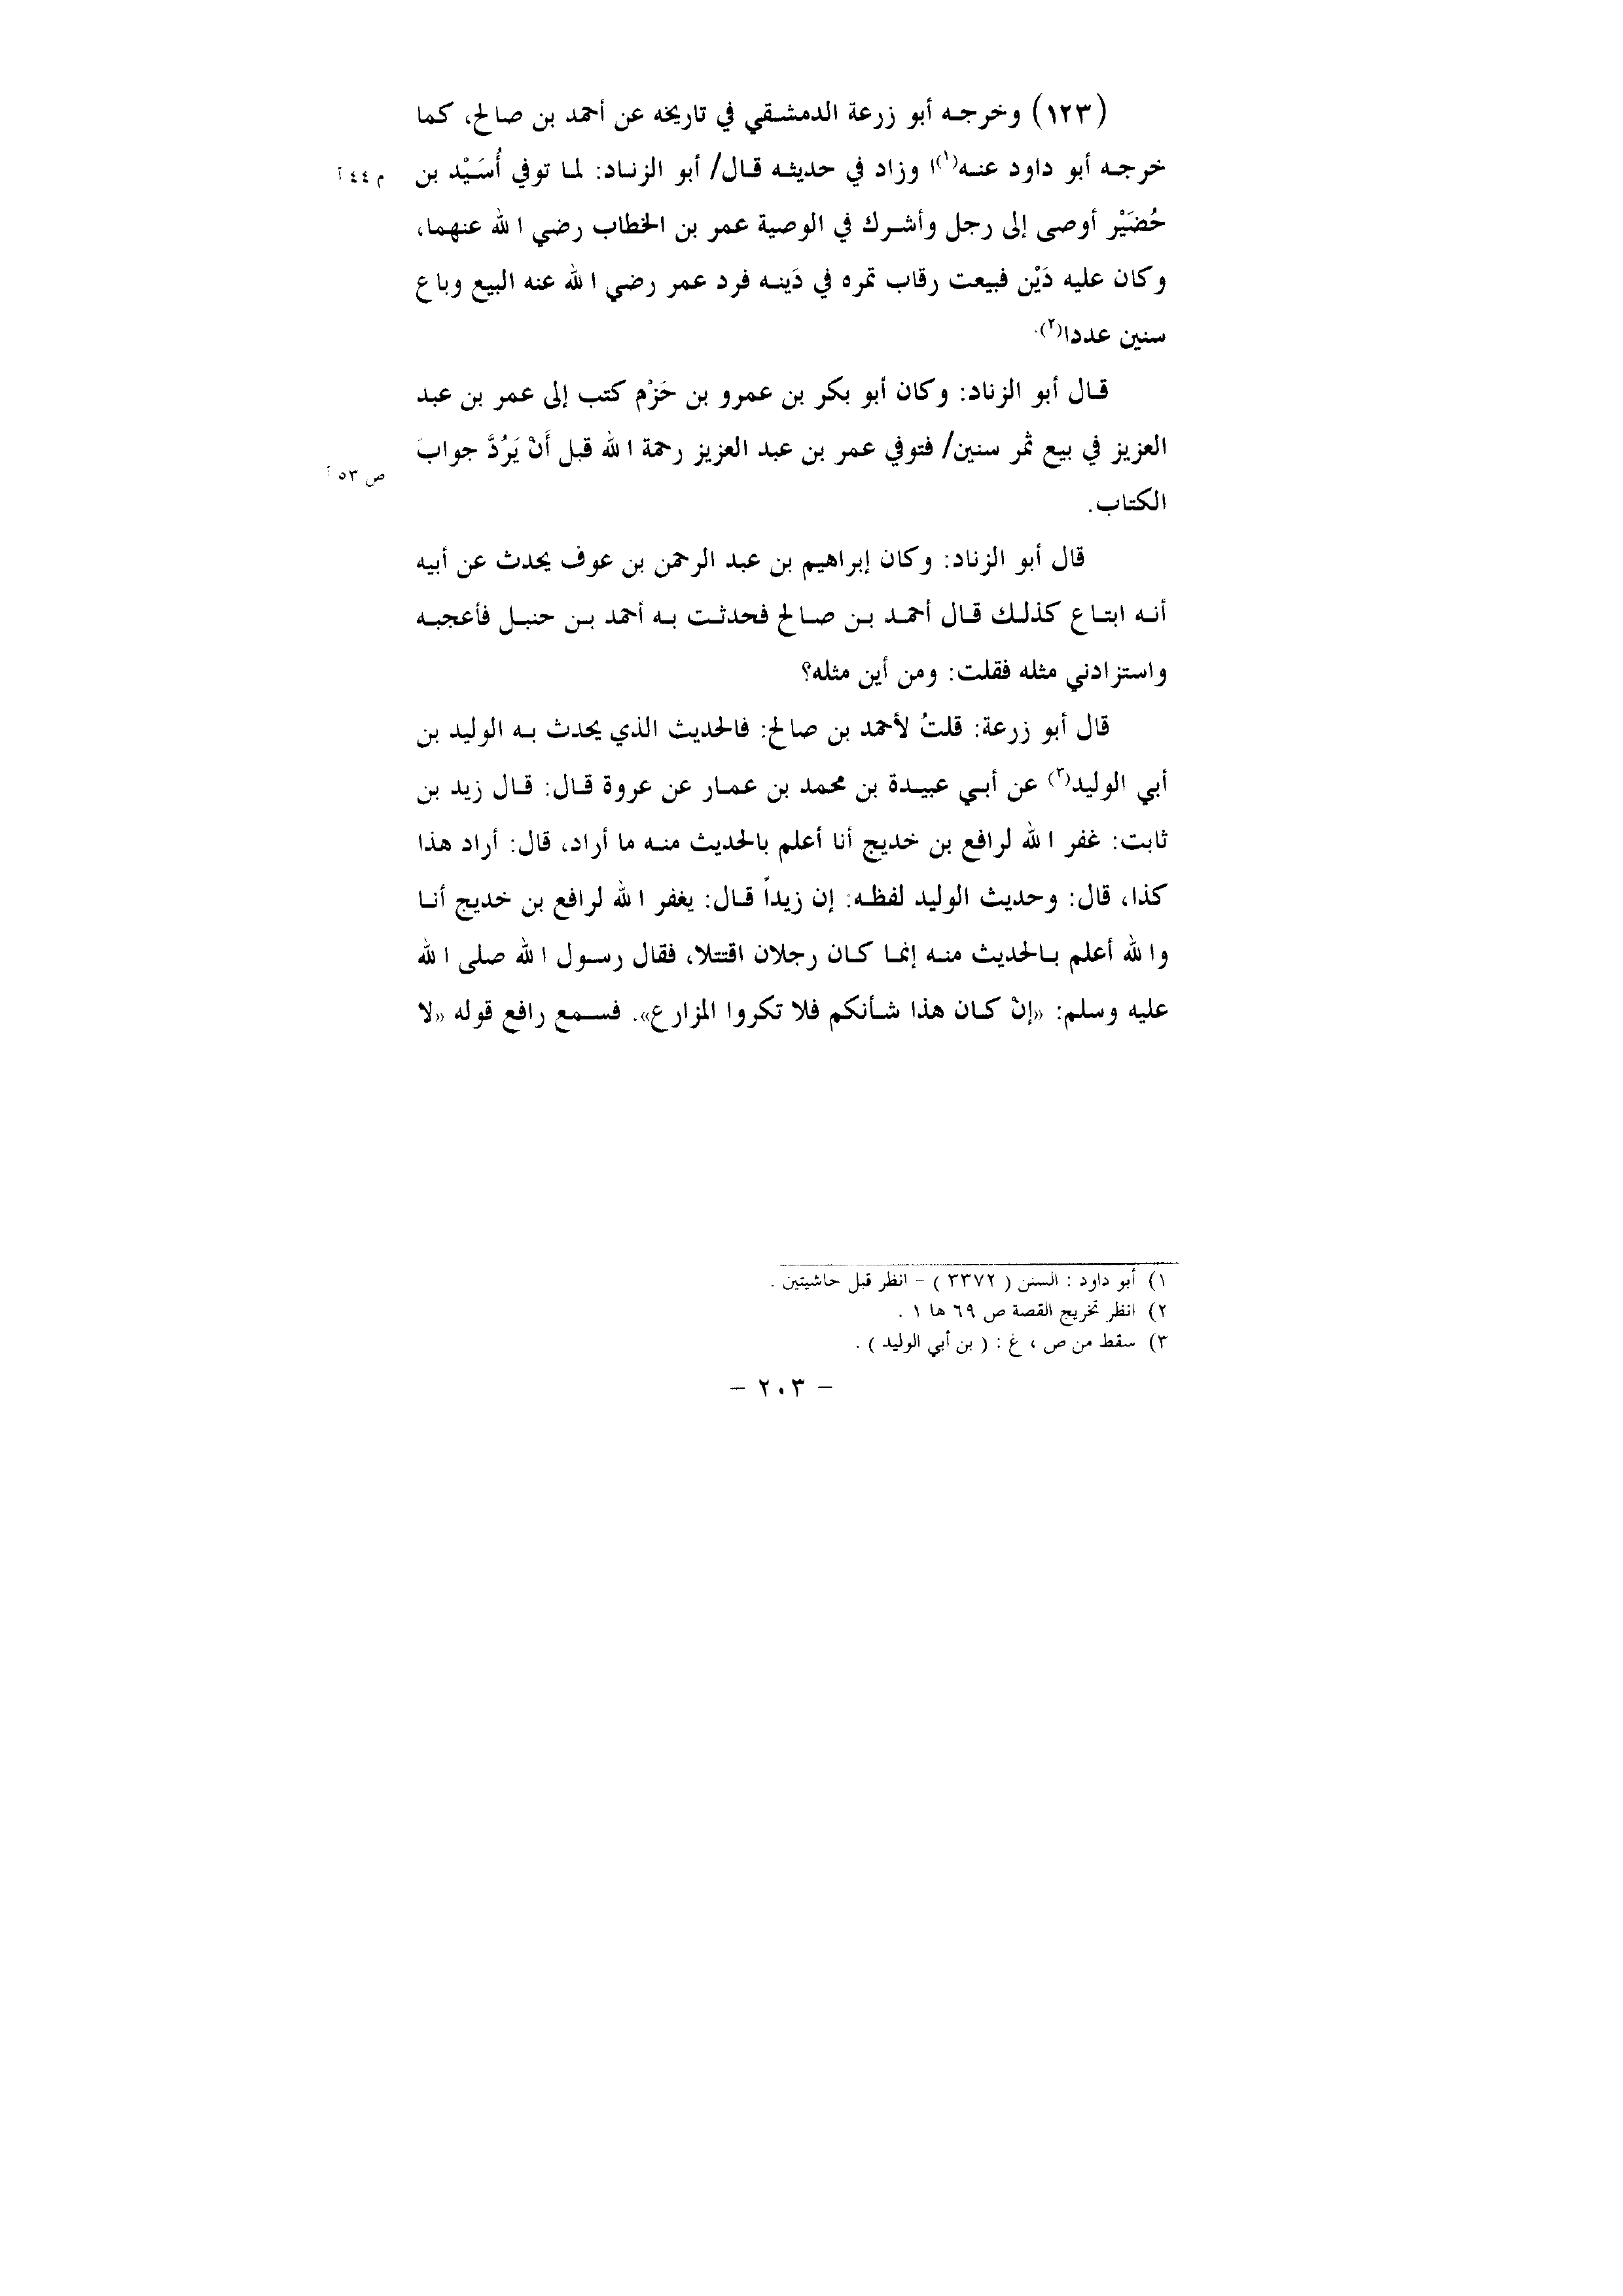 (١٢٣) وخرجه أبو زرعة الدمشقي في تاريخه عن أحمد بن صالح، كما
خرجه أبو داود عنه(١)ا وزاد في حديثه قال/ أبو الزناد: لما توفي أُسَيْد بن
م ٤٤ أ
حُضَيْر أوصى إلى رجل وأشرك في الوصية عمر بن الخطاب رضي الله عنهما،
وكان عليه دَيْن فبيعت رقاب تمره في دَينه فرد عمر رضي الله عنه البيع وباع
سنين عددا(٢).
قال أبو الزناد: وكان أبو بكر بن عمرو بن حَزْم كتب إلى عمر بن عبد
العزيز في بيع ثمر سنين/ فتوفي عمر بن عبد العزيز رحمة الله قبل أَنْ يَرُدَّ جوابَ
ص ٥٣ أ
الكتاب.
قال أبو الزناد: وكان إبراهيم بن عبد الرحمن بن عوف يحدث عن أبيه
أنه ابتاع كذلك قال أحمد بن صالح فحدثت به أحمد بن حنبل فأعجبه
واستزادني مثله فقلت: ومن أين مثله؟
قال أبو زرعة: قلتُ لأحمد بن صالح: فالحديث الذي يحدث به الوليد بن
أبي الوليد(٣) عن أبي عبيدة بن محمد بن عمار عن عروة قال: قال زيد بن
ثابت: غفر الله لرافع بن خديج أنا أعلم بالحديث منه ما أراد، قال: أراد هذا
كذا، قال: وحديث الوليد لفظه: إن زيداً قال: يغفر الله لرافع بن خديج أنا
والله أعلم بالحديث منه إنما كان رجلان اقتتلا، فقال رسول الله صلى الله
عليه وسلم: «إنْ كان هذا شأنكم فلا تكروا المزارع». فسمع رافع قوله «لا
١) أبو داود : السنن ( ٣٣٧٢ ) - انظر قبل حاشيتين .
٢) انظر تخريج القصة ص ٦٩ ها ١ .
٣) سقط من ص ، غ : ( بن أبي الوليد ) .
- ٢٠٣ -